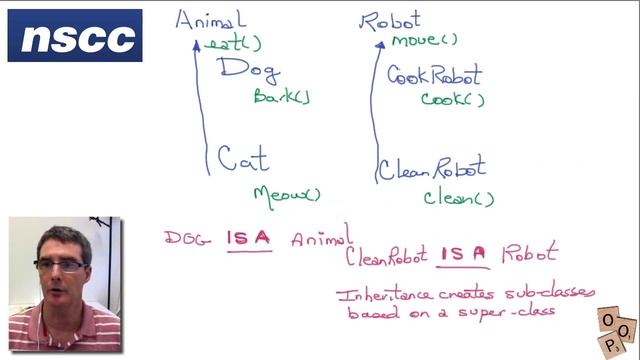 nscc
Animal
eat()
Dog
Bark()
Cat
Meow()
Robot
move()
CookRobot
Cook()
CleanRobot
Clean()
DOG IS A Animal
CleanRobot IS A Robot
Inheritance creates sub-classes
based on a super-class
O O1 P3